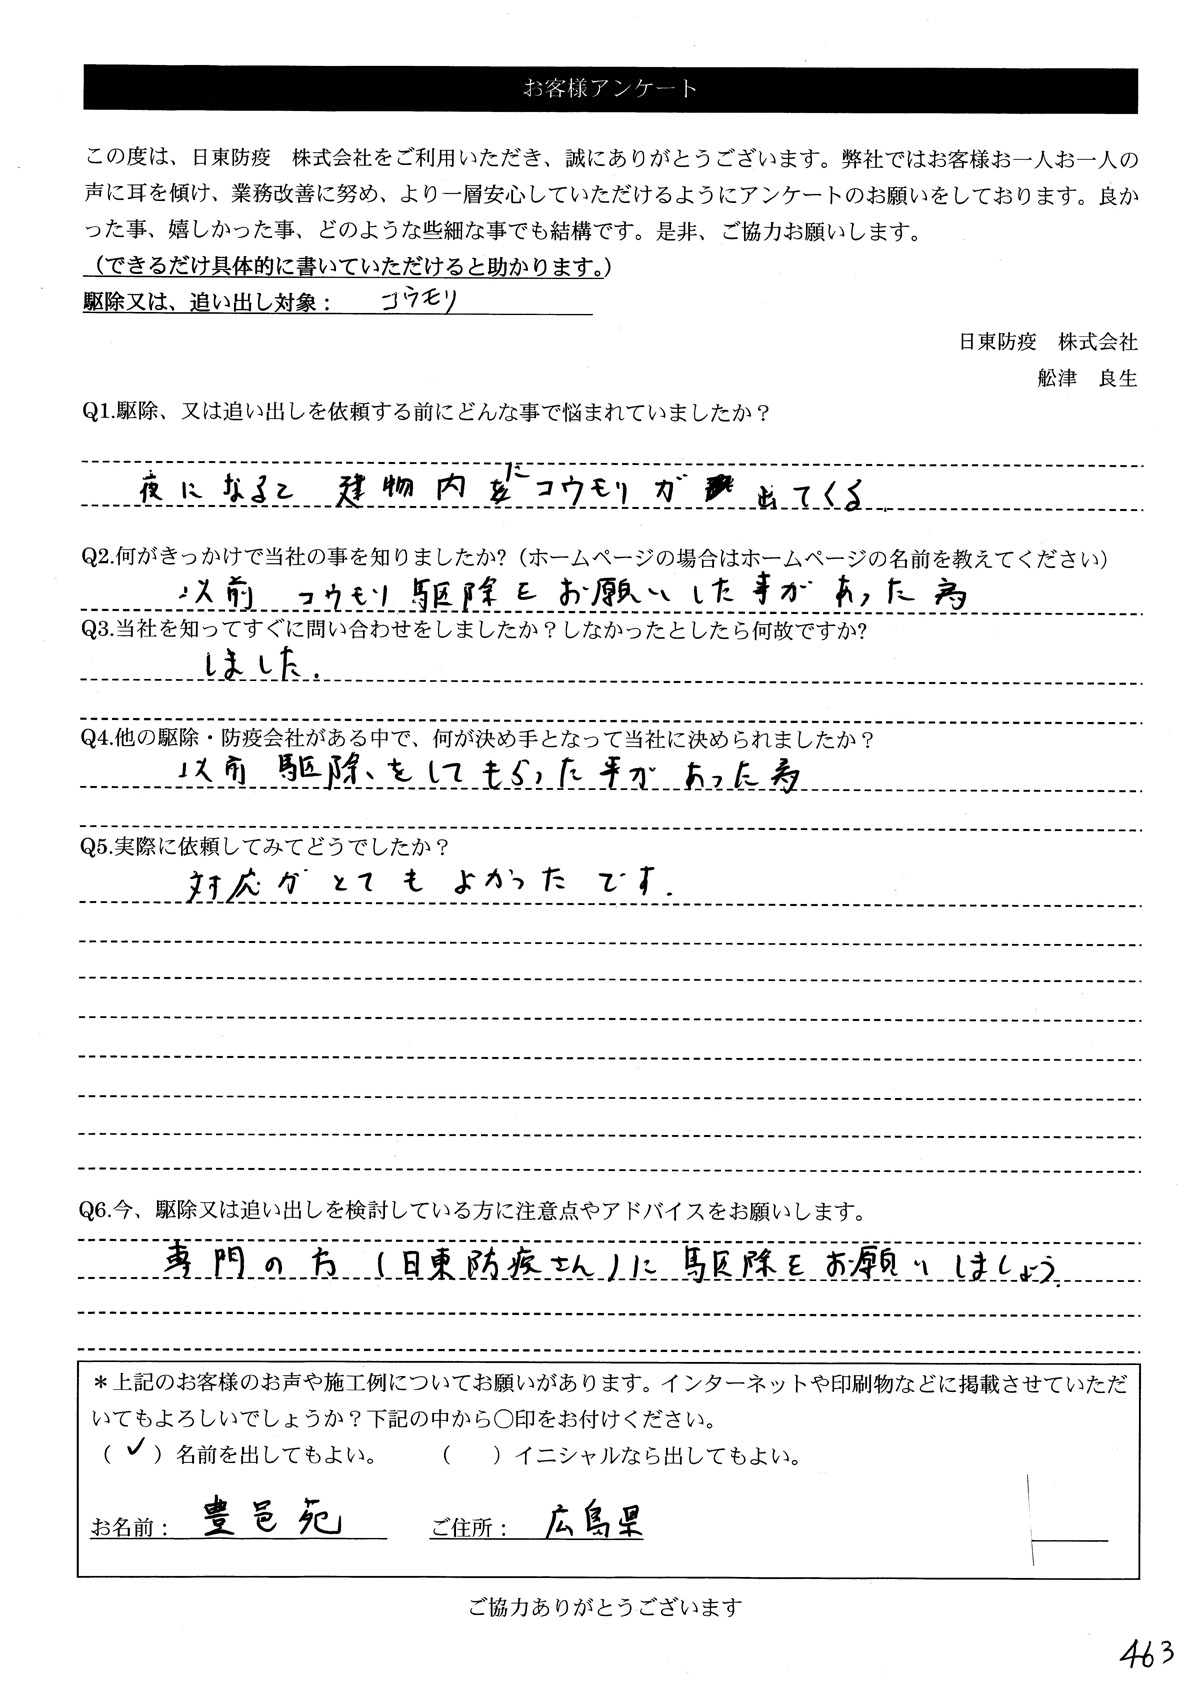 お客様アンケート
この度は、日東防疫　株式会社をご利用いただき、誠にありがとうございます。弊社ではお客様お一人お一人の
声に耳を傾け、業務改善に努め、より一層安心していただけるようにアンケートのお願いをしております。良か
った事、嬉しかった事、どのような些細な事でも結構です。是非、ご協力お願いします。
（できるだけ具体的に書いていただけると助かります。）
駆除又は、追い出し対象： コウモリ
日東防疫　株式会社
舩津　良生
Q1.駆除、又は追い出しを依頼する前にどんな事で悩まれていましたか？
夜になると 建物内にコウモリが 出てくる
Q2.何がきっかけで当社の事を知りましたか?（ホームページの場合はホームページの名前を教えてください）
以前 コウモリ駆除をお願いした事があった為
Q3.当社を知ってすぐに問い合わせをしましたか？しなかったとしたら何故ですか?
しました.
Q4.他の駆除・防疫会社がある中で、何が決め手となって当社に決められましたか？
以前 駆除をしてもらった事があった為
Q5.実際に依頼してみてどうでしたか？
対応がとてもよかったです.
Q6.今、駆除又は追い出しを検討している方に注意点やアドバイスをお願いします。
専門の方(日東防疫さん)に 駆除をお願いしましょう.
＊上記のお客様のお声や施工例についてお願いがあります。インターネットや印刷物などに掲載させていただ
いてもよろしいでしょうか？下記の中から〇印をお付けください。
（ ✓ ）名前を出してもよい。　（　　）イニシャルなら出してもよい。
お名前： 豊邑苑　ご住所： 広島県
ご協力ありがとうございます
463